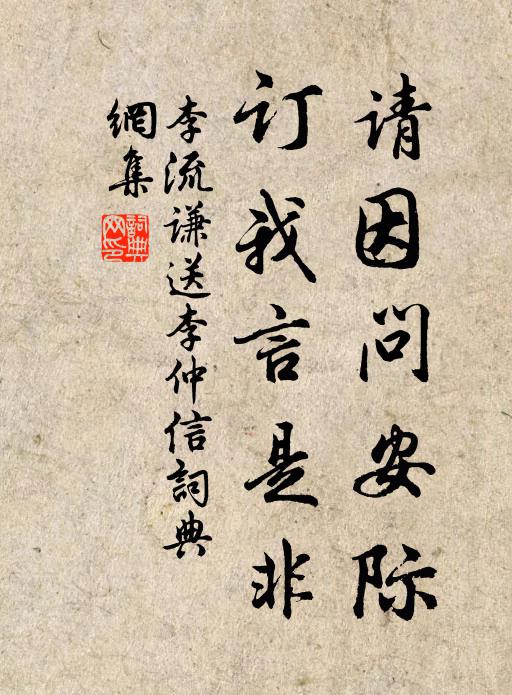 请因问安际
订我言是非
李流谦送李仲信詞典
網集
詞典网印